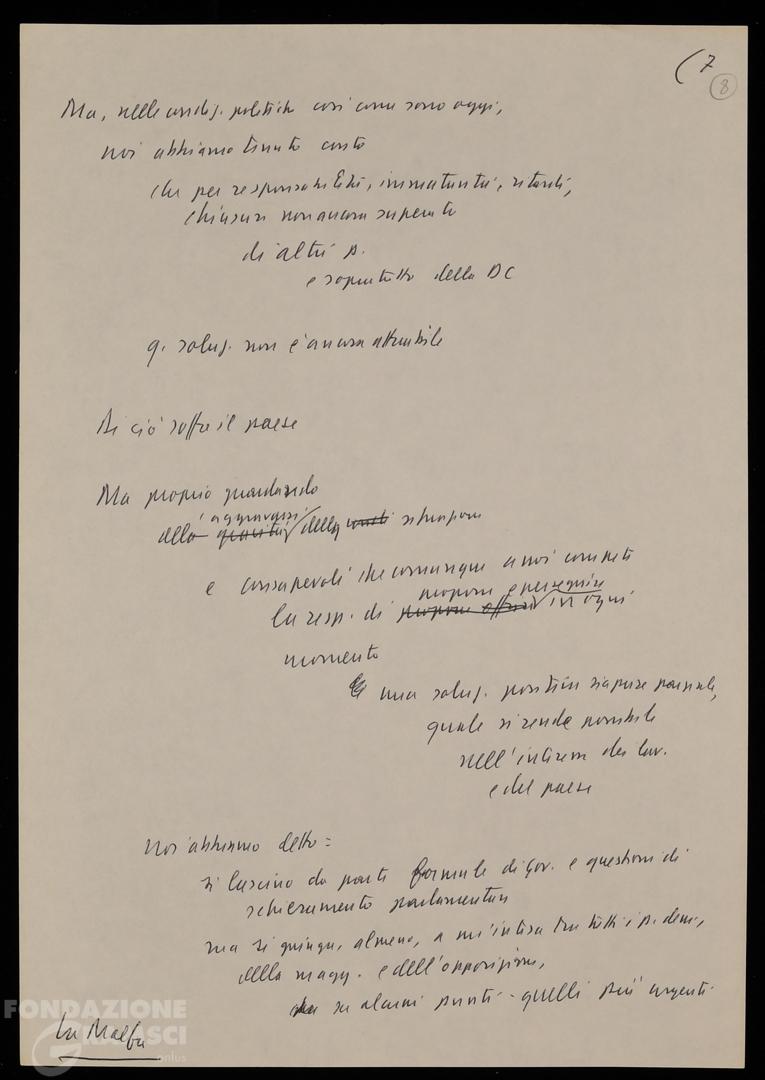 (7
8
Ma, nelle condiz. politiche così come sono oggi,
noi abbiamo tenuto conto
che per responsabilità, immaturità, ritardi,
chiusure non ancora superate
di altri p.
e soprattutto della DC
q. soluz. non è ancora attuabile
Di ciò soffre il paese
Ma proprio guardando
aggravarsi
della gravità della situazione
e consapevoli che comunque a noi compete
proporre e perseguire
la resp. di proporre in ogni
momento
una soluz. positiva sia pure parziale,
quale si rende possibile
nell'interesse dei lav.
e del paese
Noi abbiamo detto:
si lascino da parte formule di Gov. e questioni di
schieramento parlamentare
ma si giunga, almeno, a un'intesa tra tutti i p. dem.,
della magg. e dell'opposizione,
su alcuni punti - quelli più urgenti
La Malfa
FONDAZIONE
GRAMSCI
onlus